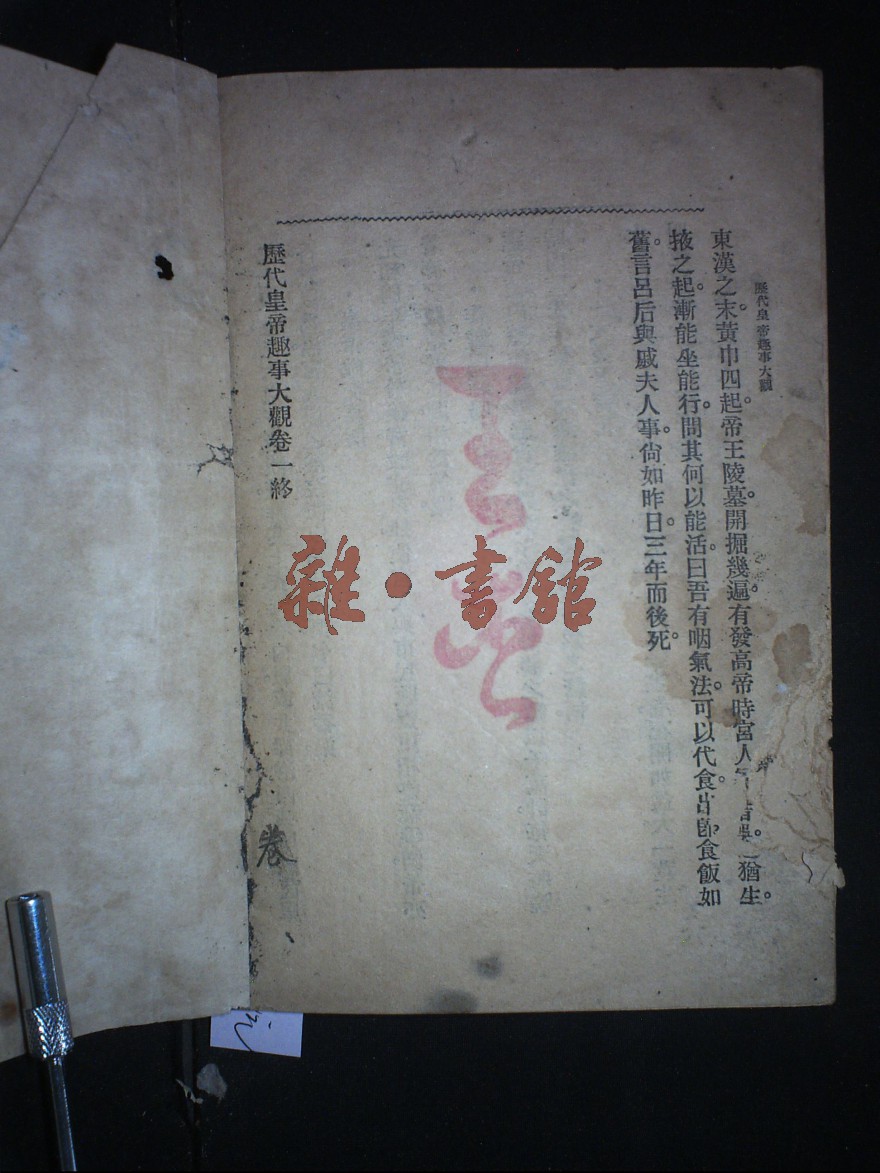 歷代皇帝趣事大觀
東漢之末。黃巾四起。帝王陵墓。開掘幾遍。有發高帝時宮人 者。 猶生。
掖之起。漸能坐能行。問其何以能活。曰吾有咽氣法。可以代食。出卽食飯如
舊。言呂后與戚夫人事。尙如昨日。三年而後死。
歷代皇帝趣事大觀卷一終
卷
雜·書館